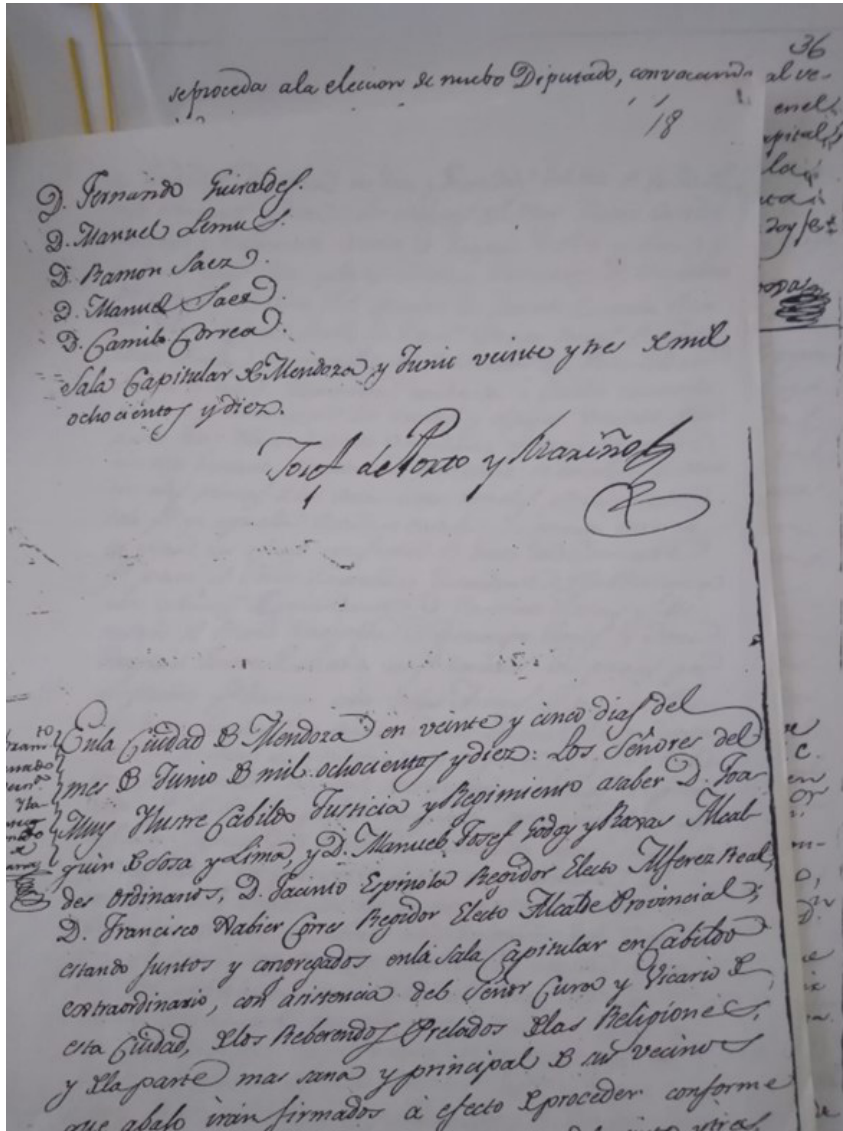 36
se proceda ala eleccion de nuebo Diputado, convocando al ve-
18
enel
apital,
D. Fernando Guiraldes.
D. Manuel Lemus.
D. Ramon Saez.
D. Manuel Saez.
D. Camilo Correa.
Sala Capitular de Mendoza y Junio veinte y tres de mil
ochocientos y diez.
Josef de Porto y Mariño
Enla Ciudad de Mendoza en veinte y cinco dias del
mes de Junio de mil ochocientos y diez: Los Señores del
Muy Ilustre Cabildo Justicia y Regimiento asaber D. Joa-
quin de Sosa y Lima, y D. Manuel Josef Godoy y Roxas Alcal-
des Ordinarios, D. Jacinto Espinola Regidor Electo Alferez Real,
D. Francisco Xabier Correa Regidor Electo Alcalde Provincial;
estando juntos y congregados enla Sala Capitular en Cabildo
extraordinario, con asistencia del Señor Cura y Vicario de
esta Ciudad, delos Reberendos Prelados delas Religiones,
y dela parte mas sana y principal de sus vecinos
que abalo iran firmados a efecto de proceder conforme